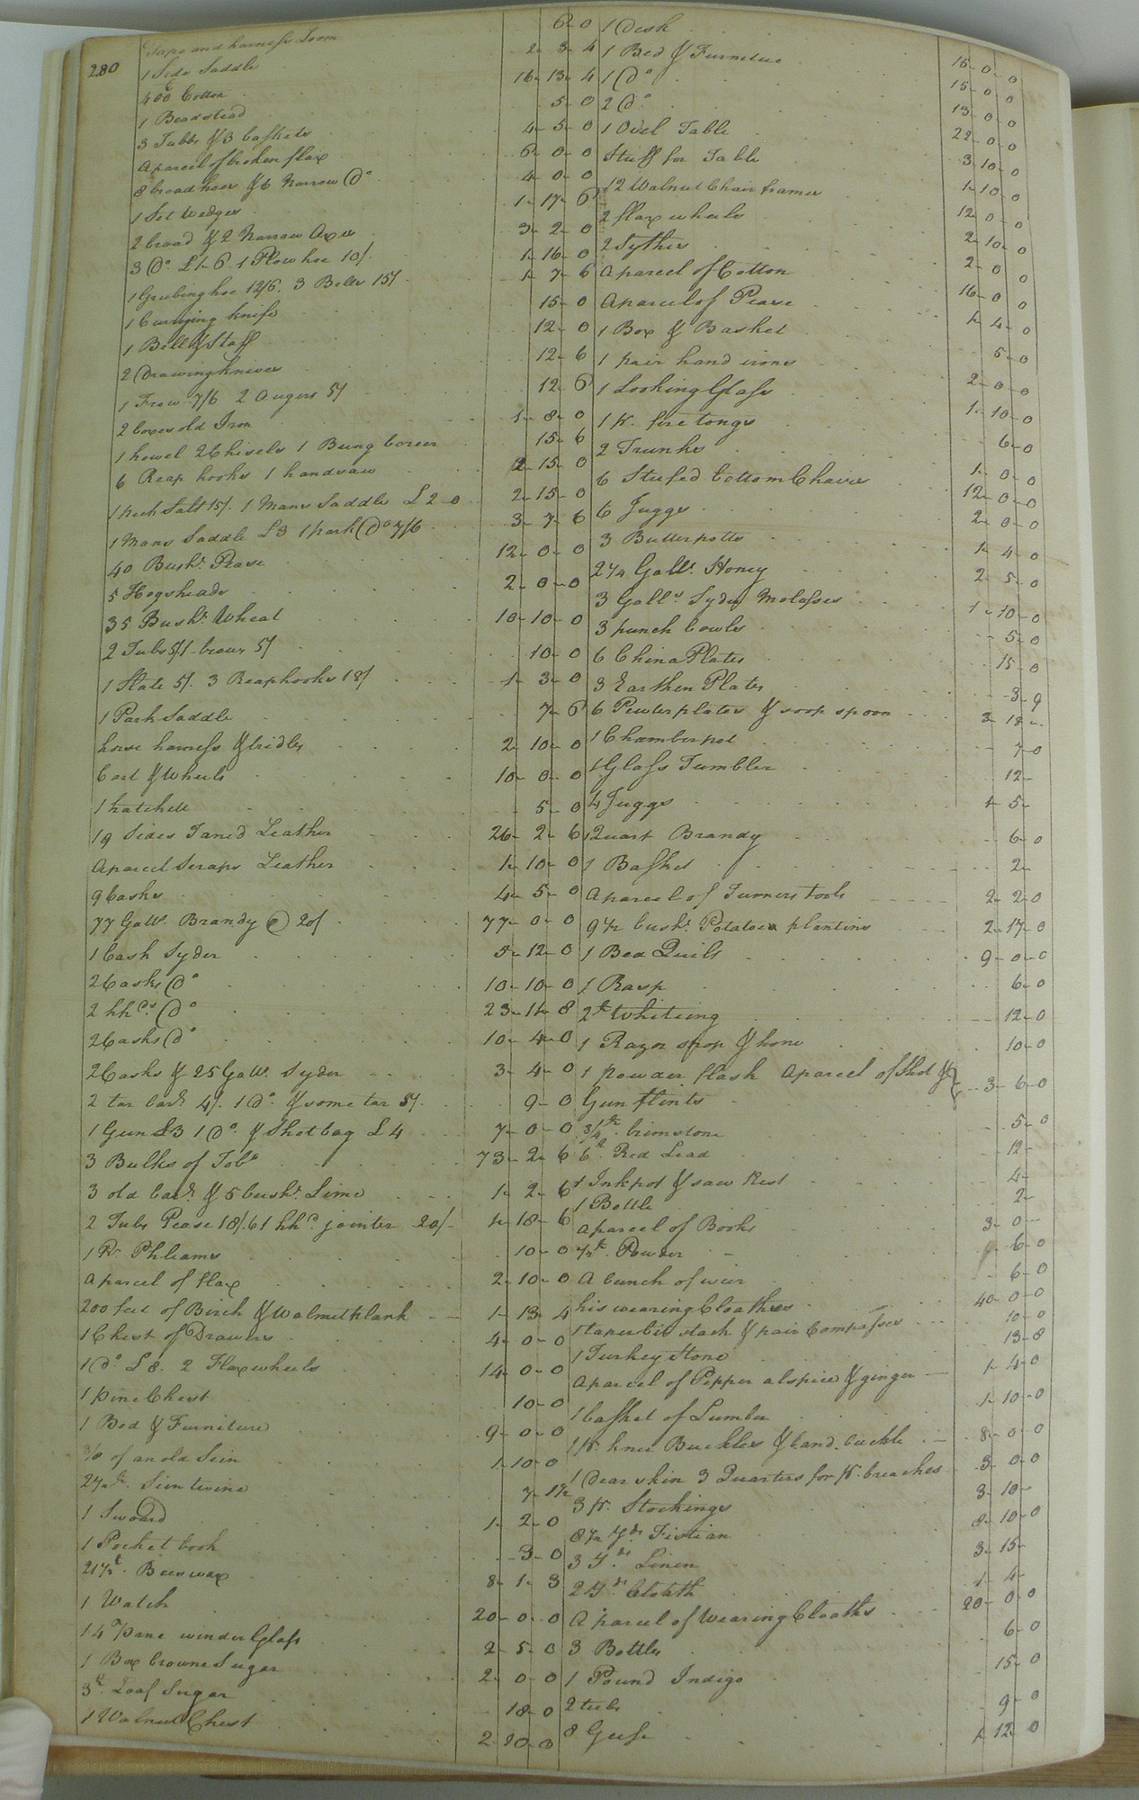 280
Tape and harness Loom 6-0
1 Side Saddle 2-3-4
400 Cotton 16-13-4
1 Beadstead 5-0
3 Tubbs & 3 baskets 4-5-0
A parcel of broken flax 6-0-0
8 broad hoes & 6 Narrow Do 4-0-0
1 Set Wedges 1-17-6
2 broad & 2 Narrow Axes 3-2-0
3 Do £1-6 1 Plow hoe 10/ 1-16-0
1 Grubing hoe 12/6 3 Bells 15/ 1-7-6
1 Currying knife 15-0
1 Bell & Staff 12-0
2 Drawing knives 12-6
1 Frow 7/6 2 Augers 5/ 12-6
2 boxes old Iron 1-8-0
1 howel 2 Chisels 1 Bung borer 15-6
6 Reap hooks 1 handsaw 2-15-0
1 peck Salt 15/ 1 Mans Saddle £2-0 2-15-0
1 Mans Saddle £3 1 pack Do 7/6 3-7-6
40 Bushs Pease 12-0-0
5 Hogsheads 2-0-0
35 Bushs Wheat 10-10-0
2 Tubs 5/ 1 brear 5/ 10-0
1 Slate 5/ 3 Reaphooks 18/ 1-3-0
1 Pack Saddle 7-6
horse harness & bridles 2-10-0
Cart & Wheels 10-0-0
1 hatchell 5-0
19 Sides Taned Leather 26-2-6
A parcel Scraps Leather 1-10-0
9 Casks 4-5-0
77 Galls Brandy @ 20/ 77-0-0
1 Cask Syder 5-12-0
2 Casks Do 10-10-0
2 hhds Do 23-11-8
2 Casks Do 10-4-0
2 Casks & 25 Galls Syder 3-4-0
2 tar bars 4/ 1 Do & some tar 5/ 9-0
1 Gun £3 1 Do & Shotbag £4 7-0-0
3 Bulks of Tobo 73-2-6
3 old bars & 5 bushs Lime 1-2-6
2 Tubs Pease 18/6 1 hhd jointer 20/ 1-18-6
1 Pr Phleams 10-0
A parcel of flax 2-10-0
200 feet of Birch & Walnut plank 1-13-4
1 Chest of Drawers 4-0-0
1 Do £8 2 Flaxwheels 14-0-0
1 pine Chest 10-0
1 Bed & Furniture 9-0-0
of an old Sein 1-10-0
Sein twine
1 Sword 1-2-0
1 Pocket book 3-0
Beeswax 8-1-3
1 Watch 20-0-0
14 Pane winder Glass 2-5-0
1 Box browne Sugar 2-0-0
3lb Loaf Sugar 18-0
1 Walnut Chest 2-10-0
1 Desk 16-0-0
1 Bed & Furniture 15-0-0
1 Do 13-0-0
2 Do 22-0-0
1 Ovel Table 3-10-0
Stuff for Table 1-10-0
12 Walnut Chair frames 12-0-0
2 flax wheels 2-10-0
2 Sythes 2-0-0
A parcel of Cotton 16-0-0
A parcel of Pease 1-4-0
1 Box & Basket 5-0
1 pair hand irons 2-0-0
1 Looking Glass 1-10-0
1 Pr fire tongs 6-0
2 Trunks 1-0-0
6 Stufed bottom Chairs 12-0-0
6 Juggs 2-0-0
3 Butterpotts 1-4-0
2 1/4 Galls Honey 2-5-0
3 Galls Syder Molasses 1-10-0
3 punch bowls 5-0
6 China Plates 15-0
3 Earthen Plates 3-9
6 Pewter plates & soop spoon 3-18-
1 Chamberpot 7-0
1 Glass Tumbler 12-
4 Juggs 1-5-
1 Quart Brandy 6-0
1 Basket 2-
A parcel of Turners tools 2-2-0
9 1/2 bushs Potatoes plenting 2-17-0
1 Bed Quilt 9-0-0
1 Rasp 6-0
2lb Whiting 12-0
1 Razor strop & hone 10-0
1 powder flask A parcel of Shot & 3-6-0
Gun flints
3/4lb brimstone 5-0
6lb Red Lead 12-
1 Inkpot & saw Rest 4-
1 Bottle 2-
A parcel of Books 3-0-
1/2lb Powder 6-0
A bunch of wier 6-0
his wearing Cloathes 40-0-0
1 taper bit stock & pair Compasses 10-0
1 Turkey Stone 13-8
A parcel of Pepper alspice & ginger 1-4-0
1 basket of Lumber 1-10-0
1 Pr knee Buckles & band buckle 8-0-0
1 Dearskin 3 Quarters for Pr breaches 3-0-0
3 Pr Stockings 3-10-
8 1/2 Yds Fistian 8-10-0
3 Yds Linen 3-15-
2 Yds Cloath 1-4-
A parcel of Wearing Cloaths 20-0-0
3 Bottles 6-0
1 Pound Indigo 15-0
2 tubs 9-0
8 Geese 1-12-0